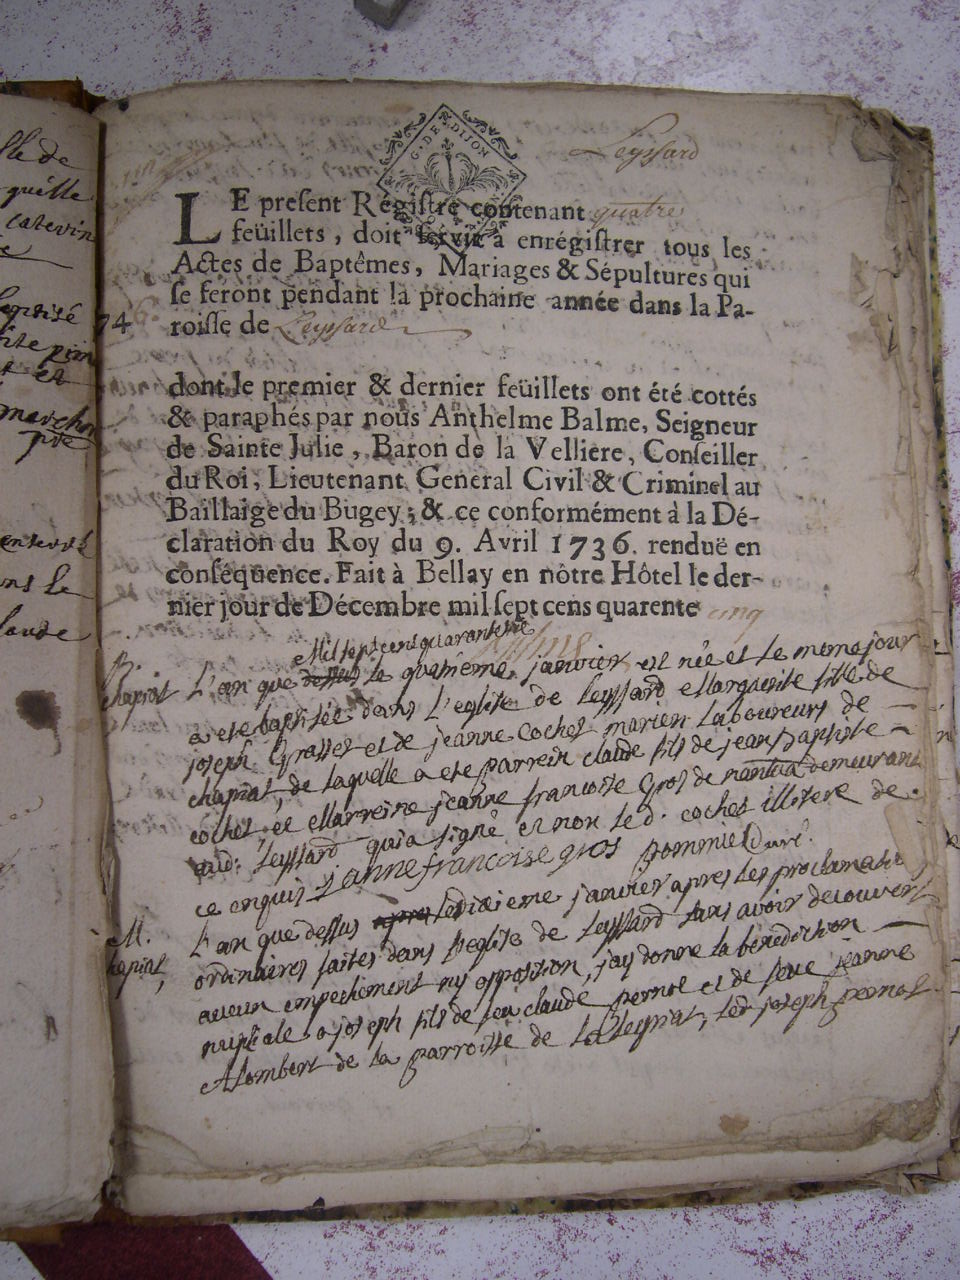 Leyssard
G. DE DIJON
LE present Régistre contenant quatre
feüillets, doit servir à enrégistrer tous les
Actes de Baptêmes, Mariages & Sépultures qui
se feront pendant la prochaine année dans la Pa-
roisse de Leyssard
74
dont le premier & dernier feüillets ont été cottés
& paraphés par nous Anthelme Balme, Seigneur
de Sainte Julie, Baron de la Velliere, Conseiller
du Roi, Lieutenant General Civil & Criminel au
Baillaige du Bugey; & ce conformément à la Dé-
claration du Roy du 9. Avril 1736. renduë en
conséquence. Fait à Bellay en nôtre Hôtel le der-
nier jour de Décembre mil sept cens quarente cinq
Mil sept cent quarante
B.
chapiat L'an que dessus le quatrième janvier est née et le meme jour
a ete baptisée dans l'eglise de leyssard Marguerite fille de
joseph Grasset et de jeanne Cochet mariez laboureurs de
chapiat, de laquelle a ete parrein claude fils de jean Baptiste
cochet, et Marreine jeanne francoise Gros de nantua demeurant
aud: leyssard qui a signé et non led. cochet illitere de
ce enquis jeanne francoise gros pommiel Curé
M.
chapiat, L'an que dessus le dixieme janvier apres les proclamations
ordinaires faites dans l'eglise de leyssard sans avoir decouvert
aucun empechement ny opposition, j'ay donne la benediction
nuptiale a joseph fils de feu claude pernot et de feue jeanne
Alombert de la parroisse de la leyriat, led joseph pernot